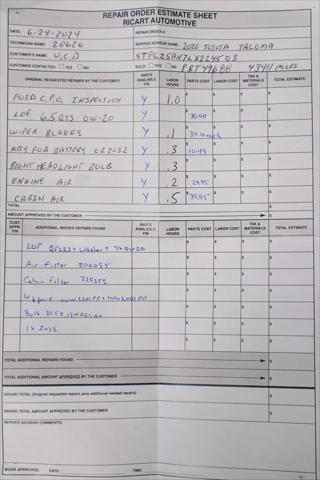 REPAIR ORDER ESTIMATE SHEET
RICART AUTOMOTIVE
DATE: 6-24-2024 REPAIR ORDER #:
TECHNICIAN NAME: 20620 SERVICE ADVISOR NAME: 2020 TOYOTA TACOMA
CUSTOMER'S NAME: U.C.D
CUSTOMER CONTACTED: YES NO SOLD YES NO 43411 MILES
ORIGINAL REQUESTED REPAIRS BY THE CUSTOMER PARTS AVAILABLE Y/N LABOR HOURS PARTS COST LABOR COST TAX & MATERIALS COST TOTAL ESTIMATE
FORD C.P.O. INSPECTION Y 1.0
LOF 6.5 QTS 0W-20 Y
WIPER BLADES Y .1
KEY FOB BATTERY CR2032 Y .3
RIGHT HEADLIGHT BULB Y .3
ENGINE AIR Y .2 29.95
CABIN AIR Y .5 39.95
TOTAL
AMOUNT APPROVED BY THE CUSTOMER
CUST. APPR. Y/N ADDITIONAL NEEDED REPAIRS FOUND PARTS AVAILABLE Y/N LABOR HOURS PARTS COST LABOR COST TAX & MATERIALS COST TOTAL ESTIMATE
LOF
Air Filter
Cabin Filter
Bulb
1x 2032
TOTAL ADDITIONAL REPAIRS FOUND
TOTAL ADDITIONAL AMOUNT APPROVED BY THE CUSTOMER
GRAND TOTAL (Original requested repairs plus additional needed repairs)
GRAND TOTAL AMOUNT APPROVED BY THE CUSTOMER
SERVICE ADVISOR COMMENTS:
WORK APPROVED: DATE: TIME: